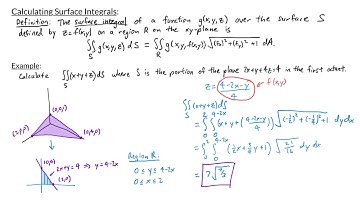 Calculating Surface Integrals:
Definition: The surface integral of a function g(x,y,z) over the surface S
defined by z=f(x,y) on a region R on the xy-plane is
∬_S g(x,y,z) dS = ∬_R g(x,y,f(x,y)) √((f_x)²+(f_y)²+1) dA.
Example:
Calculate ∬_S (x+y+z) dS where S is the portion of the plane 2x+y+4z=4 in the first octant.
z= (4-2x-y)/4 ← f(x,y)
(0,0,1)
(0,4,0)
∬_S (x+y+z) dS
= ∫_0^2 ∫_0^{4-2x} (x+y+(4-2x-y)/4) √((-1/2)²+(-1/4)²+1) dy dx
(0,4)
2x+y=4 ⇒ y=4-2x
(2,0)
Region R:
0≤y≤4-2x
0≤x≤2
= ∫_0^2 ∫_0^{4-2x} (1/2x+3/4y+1) √(21/16) dy dx